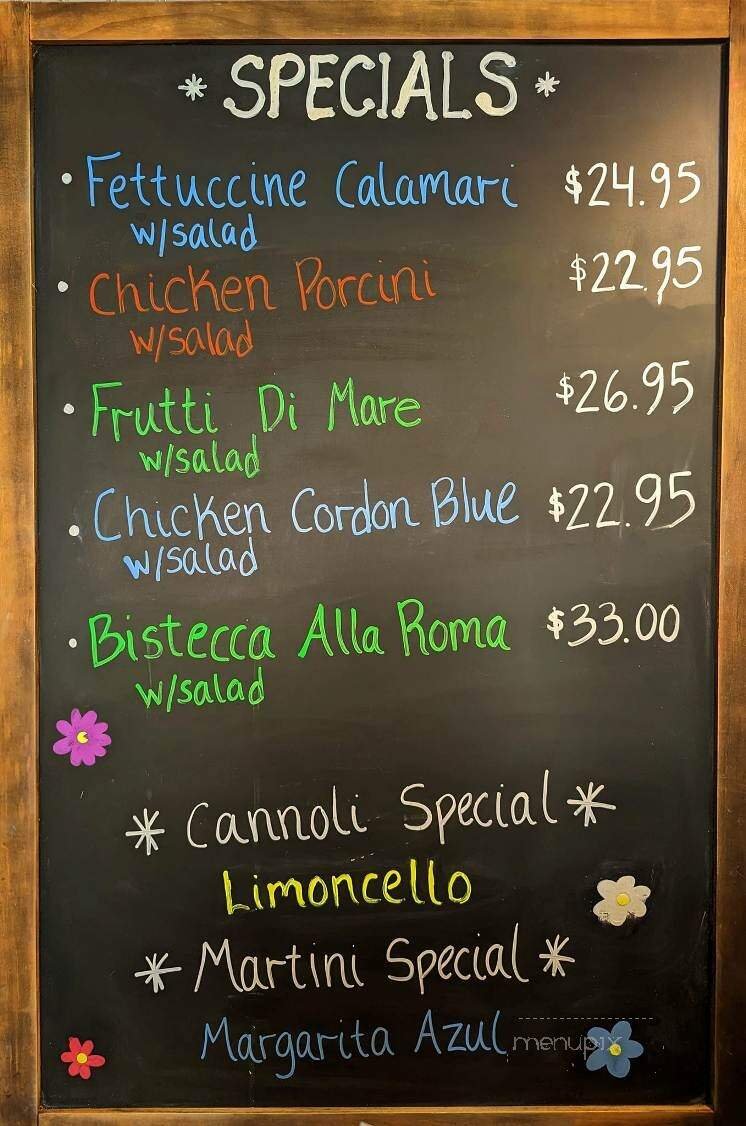 * SPECIALS *
• Fettuccine Calamari $24.95
w/salad
• Chicken Porcini $22.95
w/salad
• Frutti Di Mare $26.95
w/salad
• Chicken Cordon Blue $22.95
w/salad
• Bistecca Alla Roma $33.00
w/salad
* Cannoli Special *
Limoncello
* Martini Special *
Margarita Azul
menupix